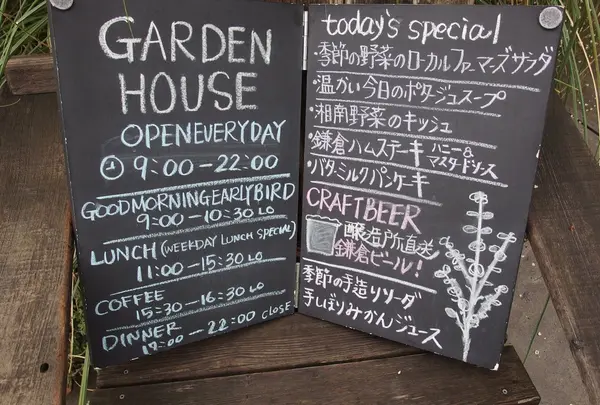 GARDEN
HOUSE
OPEN EVERYDAY
9:00-22:00
GOOD MORNING EARLY BIRD
9:00-10:30 LO
LUNCH (WEEKDAY LUNCH SPECIAL)
11:00-15:30 LO
COFFEE
15:30-16:30 LO
DINNER
17:00-22:00 CLOSE
today's special
・季節の野菜のローカルファーマーズサラダ
・温かい今日のポタージュスープ
・湘南野菜のキッシュ
・鎌倉ハムステーキ ハニー&マスタードソース
・バターミルクパンケーキ
CRAFT BEER
醸造所直送
鎌倉ビール!
季節の手造りソーダ
手しぼりみかんジュース